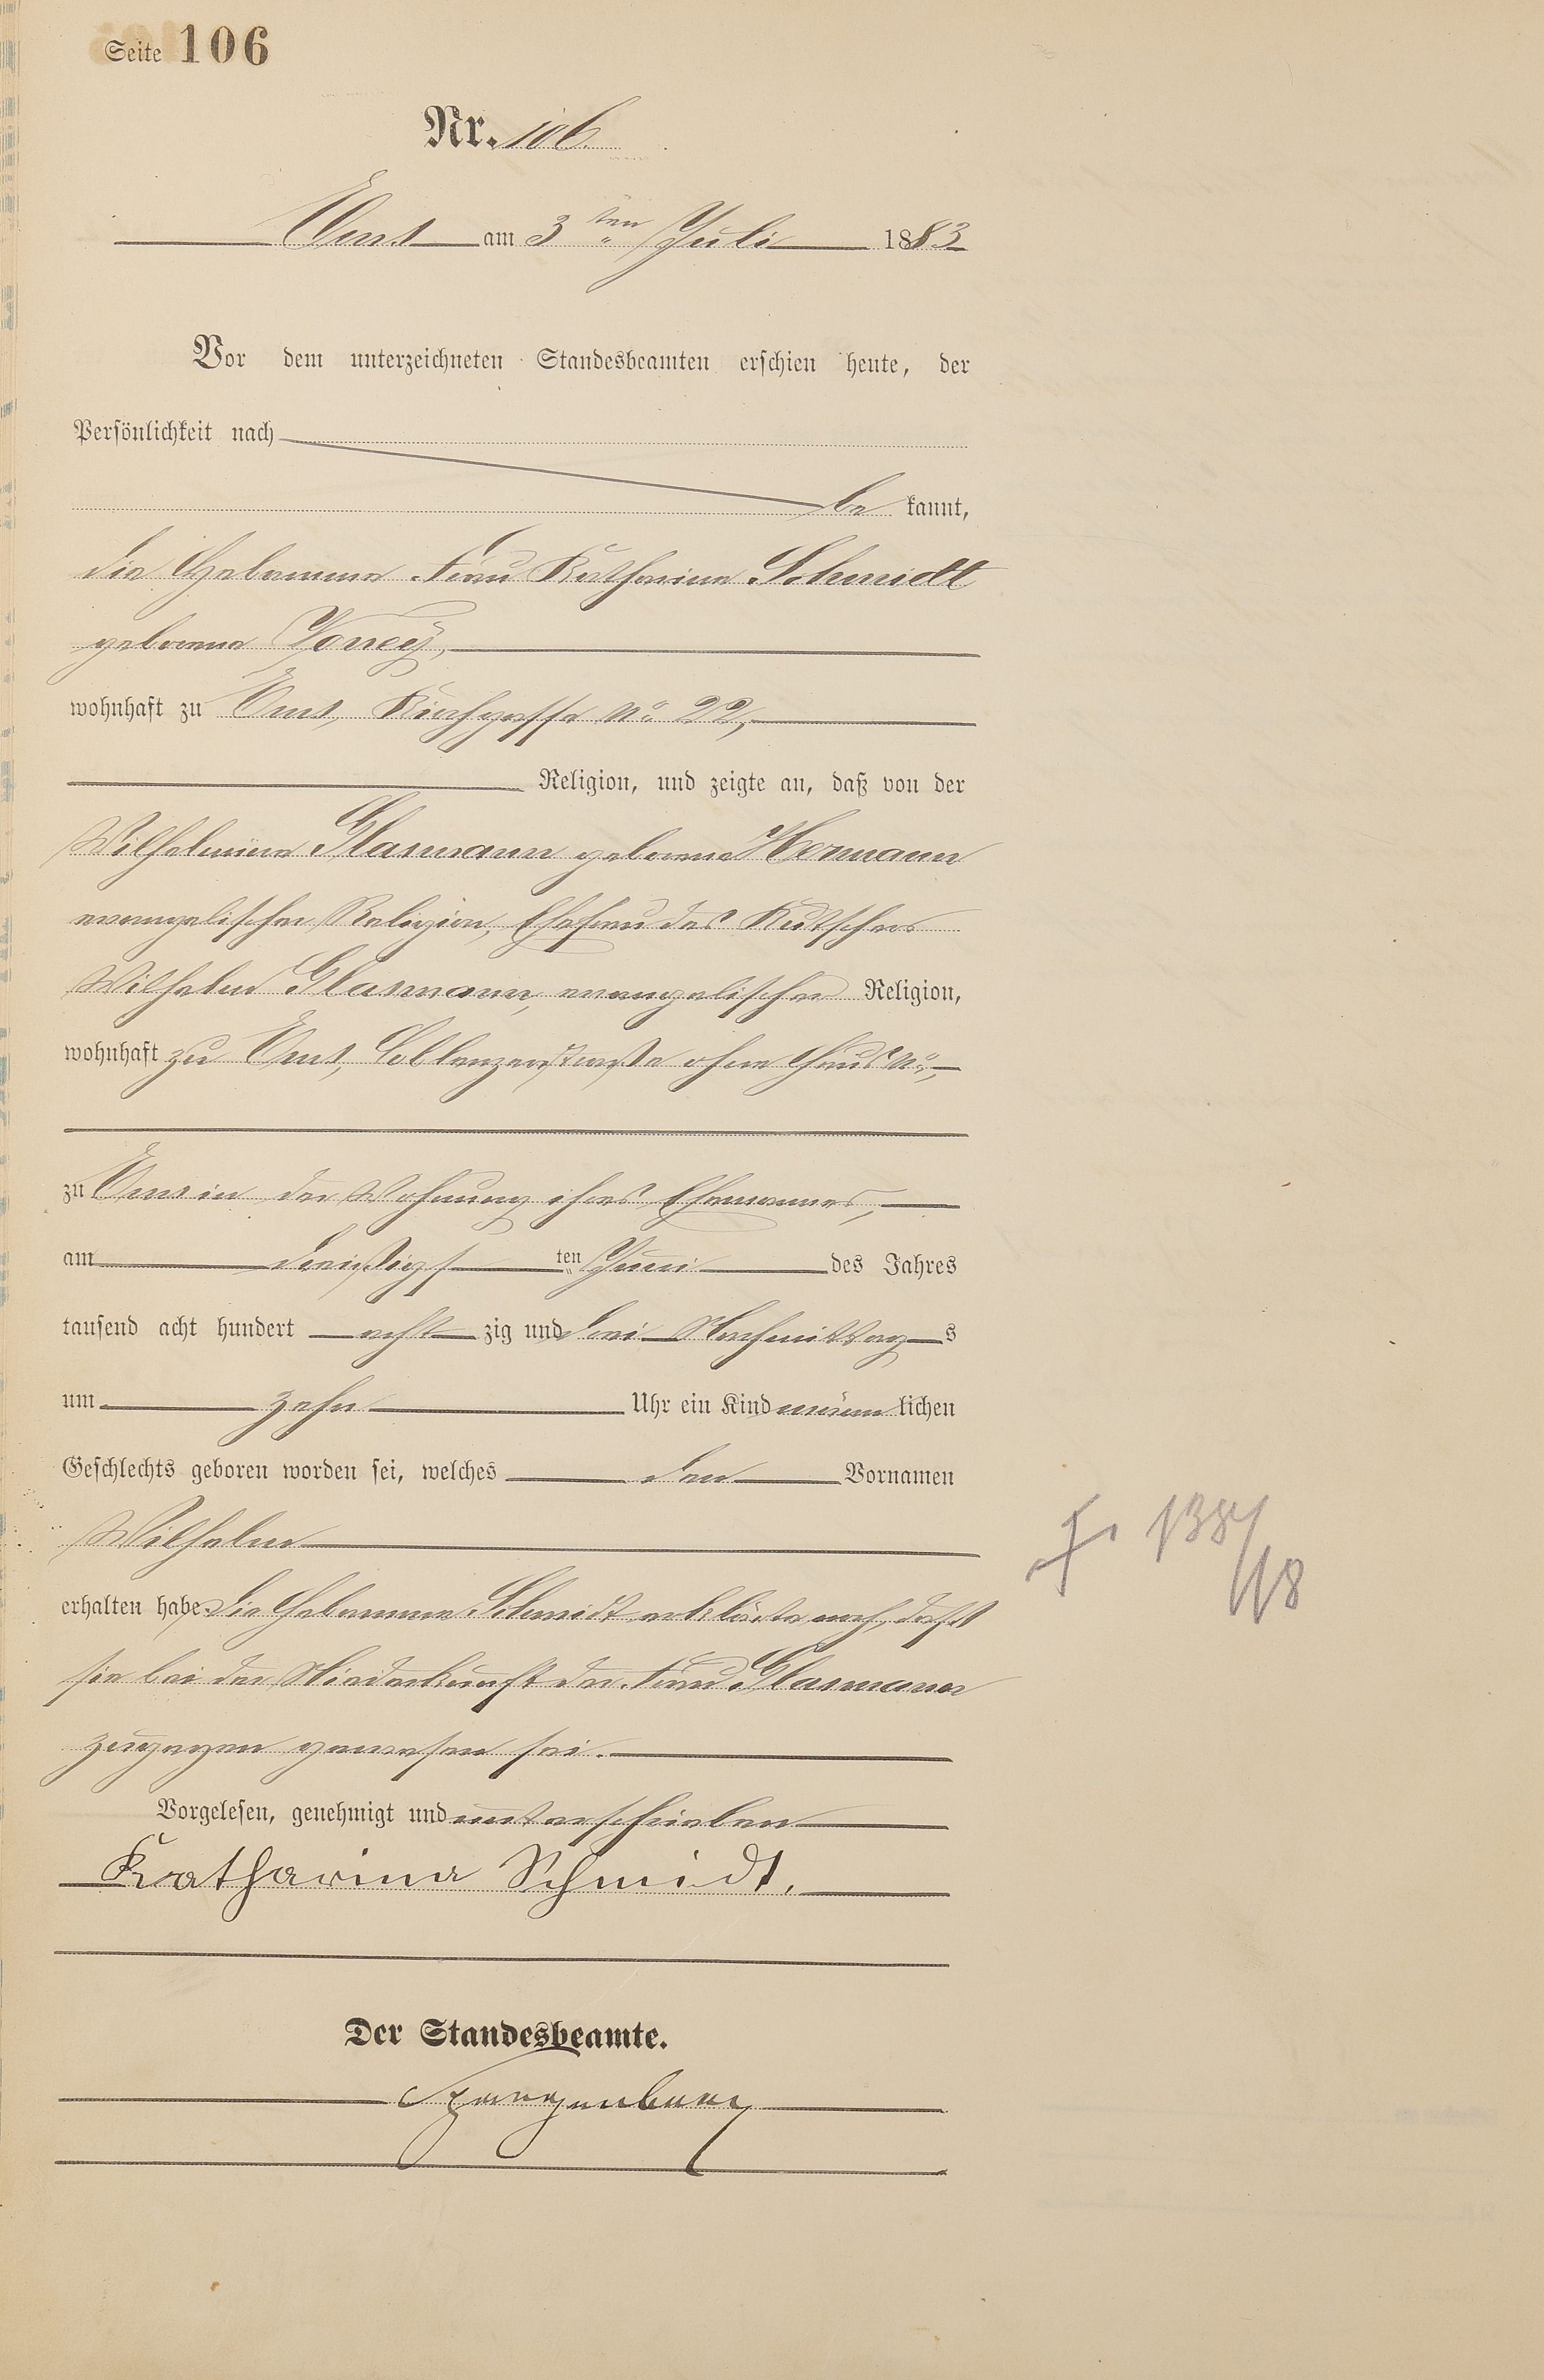 Seite 106
Nr. 106.
Ems am 3ten Juli 1883
Vor dem unterzeichneten Standesbeamten erschien heute, der
Persönlichkeit nach
be kannt,
die Hebamme Frau Katharina Schmidt
geborene
wohnhaft zu Ems, Kirchgasse No 22,
Religion, und zeigte an, daß von der
Wilhelmine Glasmann geborene Hermann
evangelischer Religion, Ehefrau des Kutschers
Wilhelm Glasmann, evangelischer Religion,
wohnhaft zu Ems, Coblenzerstraße ohne Haus No,
zu Ems in der Wohnung ihres Ehemannes,
am dreißigsten Juni des Jahres
tausend acht hundert acht zig und drei Nachmittag s
um zehn Uhr ein Kind männ lichen
Geschlechts geboren worden sei, welches den Vornamen
Wilhelm
erhalten habe. Die Hebamme Schmidt erklärte noch, daß
sie bei der Niederkunft der Frau Glasmann
zugegen gewesen sei.
Vorgelesen, genehmigt und unterschrieben
Katharina Schmidt.
Der Standesbeamte.
Spangenberg